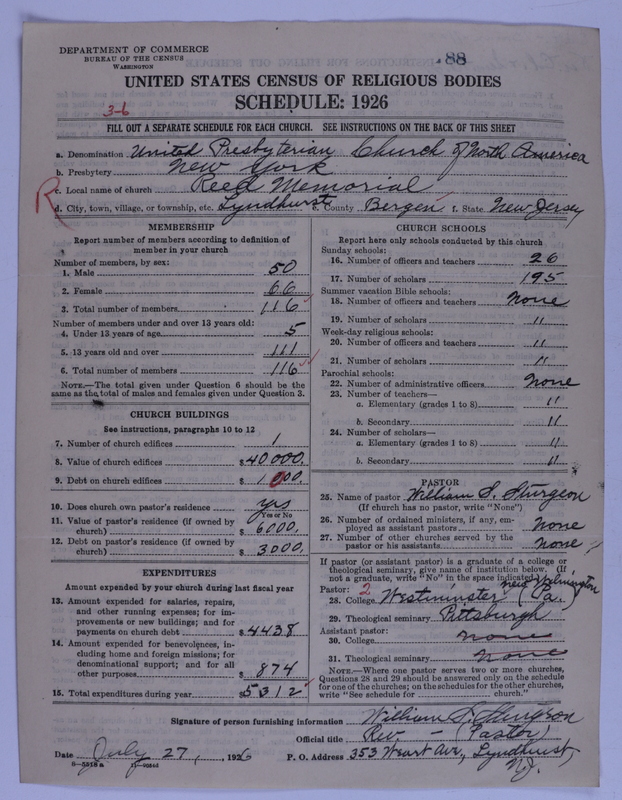 DEPARTMENT OF COMMERCE
BUREAU OF THE CENSUS
WASHINGTON
88
UNITED STATES CENSUS OF RELIGIOUS BODIES
SCHEDULE: 1926
3-6
FILL OUT A SEPARATE SCHEDULE FOR EACH CHURCH. SEE INSTRUCTIONS ON THE BACK OF THIS SHEET
a. Denomination United Presbyterian Church of North America
b. Presbytery New York
c. Local name of church Reed Memorial
R
d. City, town, village, or township, etc. Lyndhurst e. County Bergen f. State New Jersey
MEMBERSHIP
Report number of members according to definition of
member in your church
Number of members, by sex:
1. Male 50
2. Female 66
3. Total number of members 116
Number of members under and over 13 years old:
4. Under 13 years of age 5
5. 13 years old and over 111
6. Total number of members 116
NOTE.—The total given under Question 6 should be the
same as the total of males and females given under Question 3.
CHURCH BUILDINGS
See instructions, paragraphs 10 to 12
7. Number of church edifices 1
8. Value of church edifices $40000.
9. Debt on church edifices $1000.
10. Does church own pastor's residence yes
Yes or No
11. Value of pastor's residence (if owned by
church) $6000.
12. Debt on pastor's residence (if owned by
church) $3000.
EXPENDITURES
Amount expended by your church during last fiscal year
13. Amount expended for salaries, repairs,
and other running expenses; for im-
provements or new buildings; and for
payments on church debt $4438
14. Amount expended for benevolences, in-
cluding home and foreign missions; for
denominational support; and for all
other purposes $874
15. Total expenditures during year $5312
CHURCH SCHOOLS
Report here only schools conducted by this church
Sunday schools:
16. Number of officers and teachers 26
17. Number of scholars 195
Summer vacation Bible schools:
18. Number of officers and teachers None
19. Number of scholars "
Week-day religious schools:
20. Number of officers and teachers "
21. Number of scholars "
Parochial schools:
22. Number of administrative officers None
23. Number of teachers—
a. Elementary (grades 1 to 8) "
b. Secondary "
24. Number of scholars—
a. Elementary (grades 1 to 8) "
b. Secondary "
PASTOR
25. Name of pastor William S. Sturgeon
(If church has no pastor, write "None")
26. Number of ordained ministers, if any, em-
ployed as assistant pastors None
27. Number of other churches served by the
pastor or his assistants None
If pastor (or assistant pastor) is a graduate of a college or
theological seminary, give name of institution below. (If
not a graduate, write "No" in the space indicated) New Wilmington
Pastor: 2
28. College Westminster (Pa.)
29. Theological seminary Pittsburgh
Assistant pastor:
30. College None
31. Theological seminary None
NOTE.—Where one pastor serves two or more churches,
Questions 28 and 29 should be answered only on the schedule
for one of the churches; on the schedules for the other churches,
write "See schedule for church."
Signature of person furnishing information William S. Sturgeon
Official title Rev. - (Pastor)
Date July 27, 1926 P. O. Address 353 Av., Lyndhurst,
N.J.